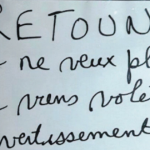 RETOUN
- ne veux pl
- viens volé
vertissement